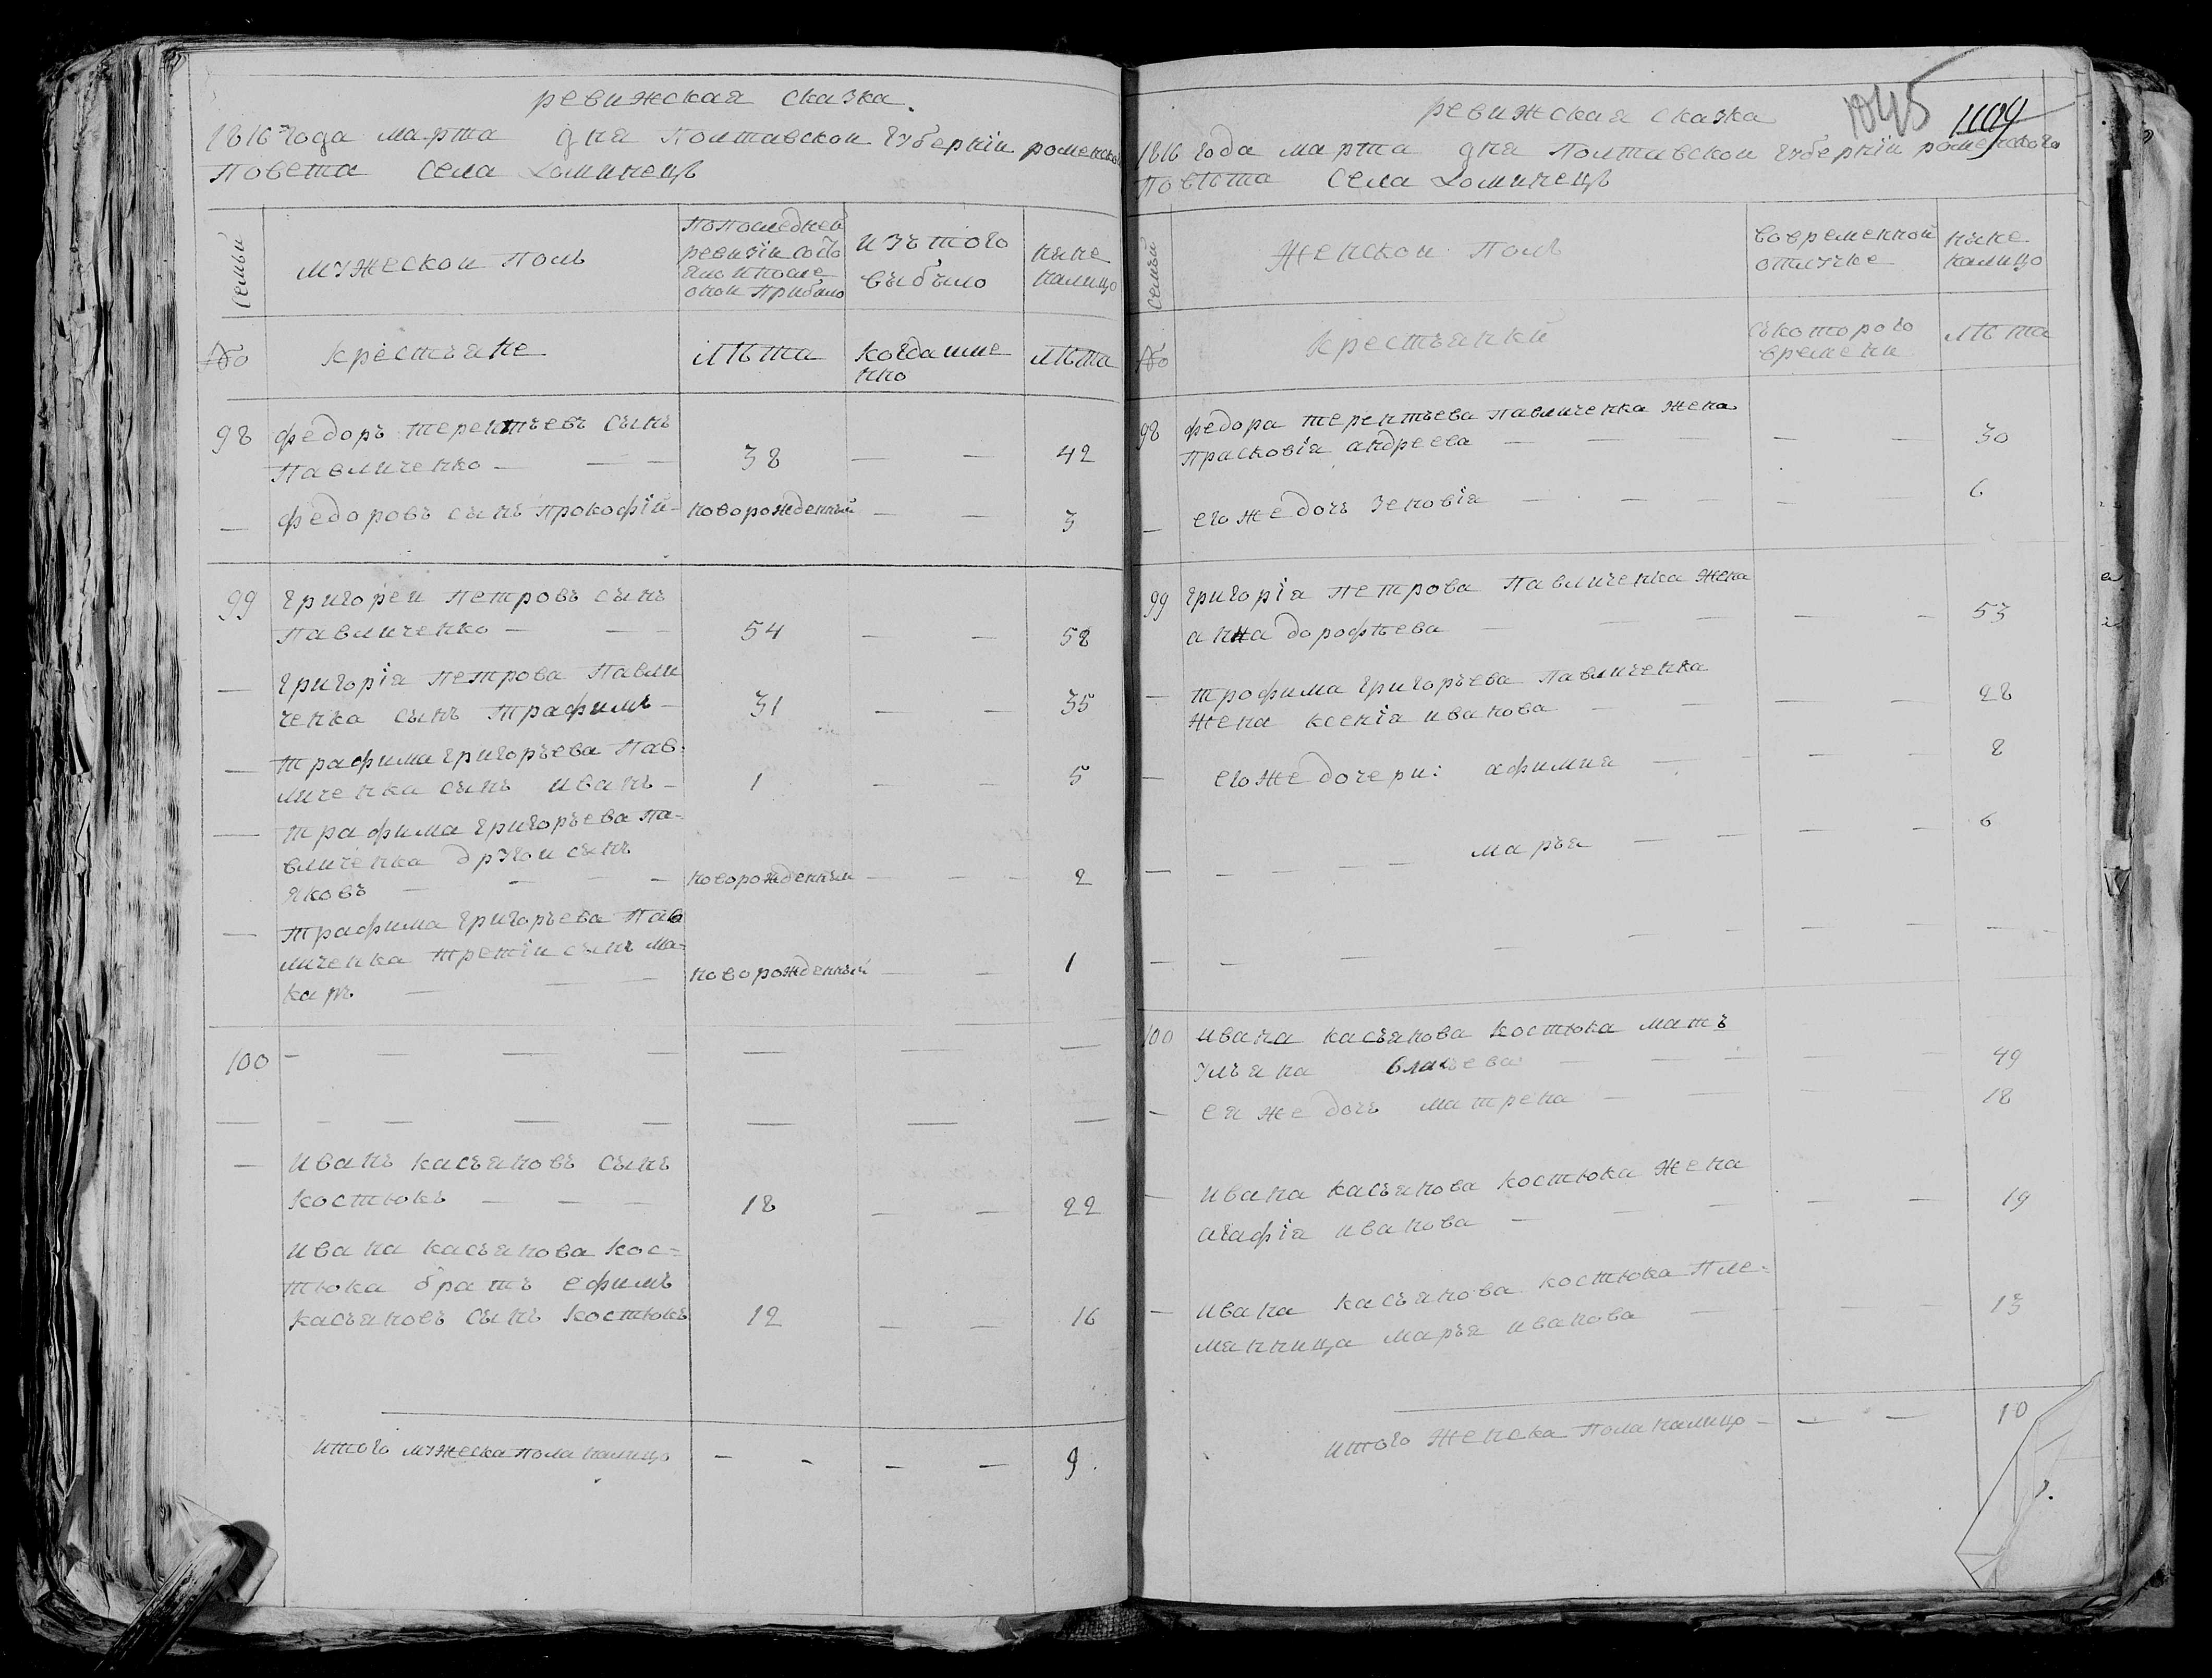 ревижская сказка.
1816 года марта дня Полтавской губернїи роменского
Повета села Хоминецъ
Семьи
мужеской полъ
По последней
ревизїи состо
яло и после
оной прибыло
изъ того
выбыло
ныне
налицо
No
крестьяне
лѣта
когда имен
но
лѣта
98 федоръ терентьевъ сынъ
Павличенко — 38 — 42
— федоровъ сынъ прокофїй — новорожденный — 3
99 григорей петровъ сынъ
Павличенко — 54 — 58
— григорїя петрова Павли
ченка сынъ трафимъ — 31 — 35
— трафима григорьева Пав-
личенка сынъ иванъ — 1 — 5
— трафима григорьева Па-
вличенка другой сынъ
яковъ — новорожденный — 2
— трафима григорьева Пав
личенка третїй сынъ ма-
каръ — новорожденный — 1
100 —
— иванъ касьяновъ сынъ
костюкъ — 18 — 22
ивана касьянова кос-
тюка братъ ефимъ
касьяновъ сынъ костюкъ 12 — 16
итого мужеска пола налицо — 9.
ревижская сказка
1045 1109
1816 года марта дня Полтавской губернїи роменского
Повѣта села Хоминецъ
Семьи
Женской полъ
во временной
отлучке
ныне
налицо
No
крестьянки
съ которого
времени
лѣта
98 федора терентьева павличенка жена
прасковїя андреева — 30
— его же дочь зеновїя — 6
99 григорїя петрова павличенка жена
анна дорофѣева — 53
— трофима григорьева павличенка
жена ксенїя иванова — 28
— его же дочери: афимия — 8
— марья — 6
100 ивана касьянова костюка мать
ульяна власьева — 49
— ея же дочь матрена — 18
— ивана касьянова костюка жена
агафїя иванова — 19
— ивана касьянова костюка пле-
мянница марья иванова — 13
итого женска пола налицо — 10